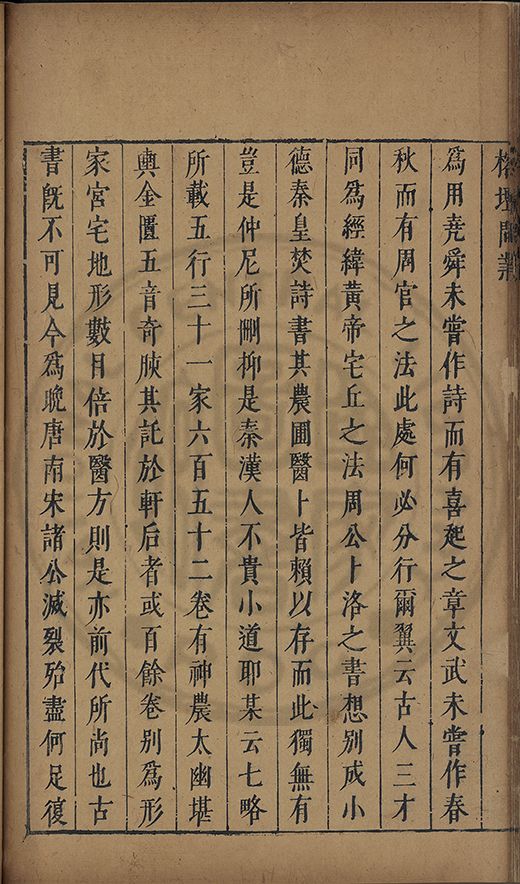 榕壇問業
為用堯舜未嘗作詩而有喜起之章文武未嘗作春
秋而有周官之法此處何必分行爾翼云古人三才
同為經緯黃帝宅丘之法周公卜洛之書想別成小
德秦皇焚詩書其農圃醫卜皆賴以存而此獨無有
豈是仲尼所刪抑是秦漢人不貴小道耶某云七略
所載五行三十一家六百五十二卷有神農太幽堪
輿金匱五音奇胲其託於軒后者或百餘卷別為形
家宮宅地形數目倍於醫方則是亦前代所尚也古
書旣不可見今為晚唐南宋諸公滅裂殆盡何足復